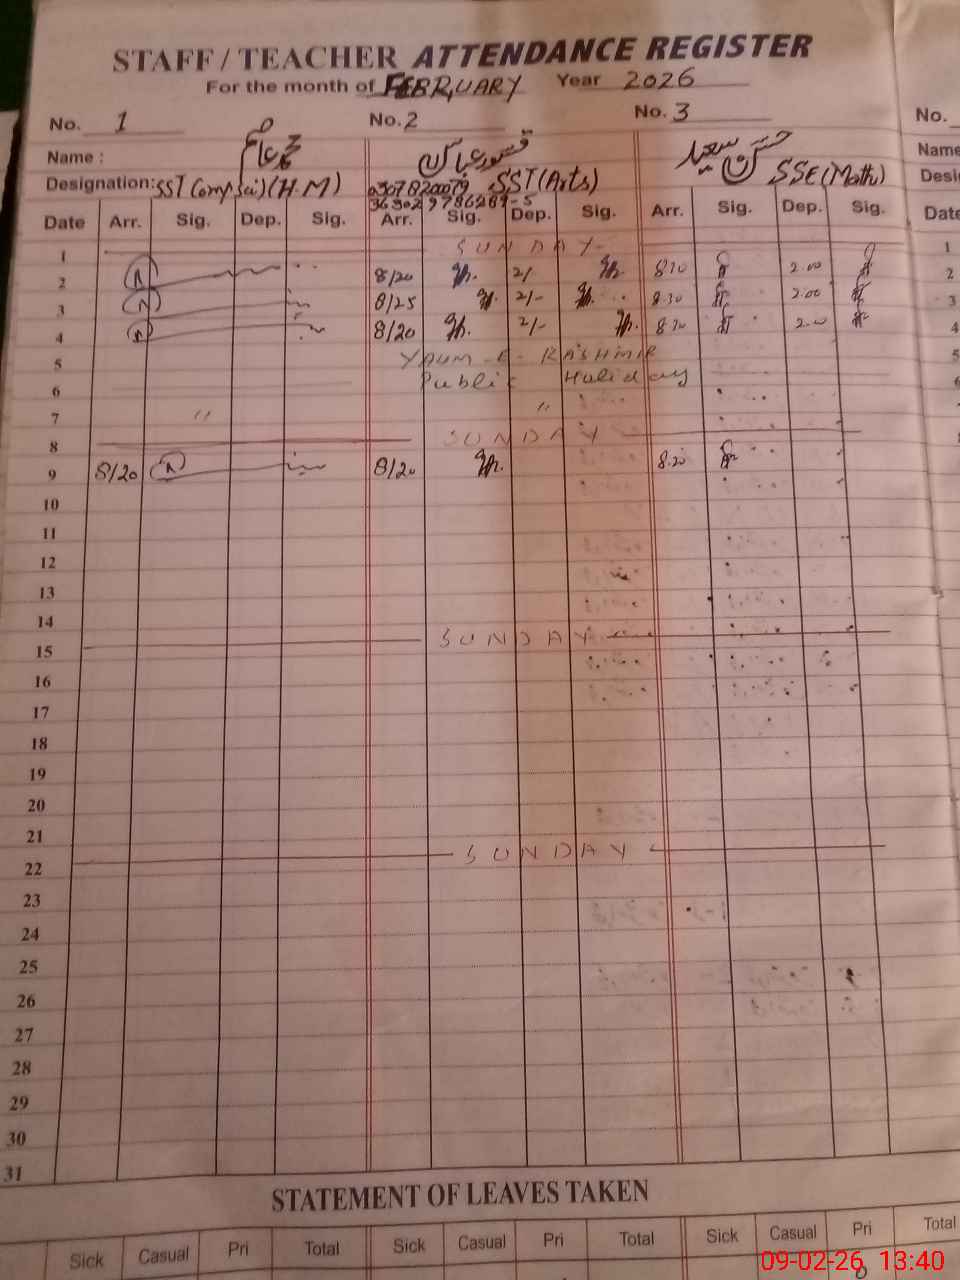 STAFF / TEACHER ATTENDANCE REGISTER
For the month of FEBRUARY Year 2026
No. 1 No. 2 No. 3 No.
Name : محمد عامر قیصور عباس حسن سعید Name
Designation: SST (Comp Sci) (H.M) 03078200079 SST (Arts) SSE (Math) Desi
Date Arr. Sig. Dep. Sig. Arr. Sig. Dep. Sig. Arr. Sig. Dep. Sig. Date
1 SUNDAY 1
2 8/20 2/- 8:20 2.00 2
3 8/25 2/- 8:30 2.00 3
4 8/20 2/- 8:20 2.00 4
5 YAUM-E-KASHMIR 5
6 Public Holiday 6
7 " "
8 SUNDAY
9 8/20 8/20 8.20
10
11
12
13
14
15 SUNDAY
16
17
18
19
20
21
22 SUNDAY
23
24
25
26
27
28
29
30
31
STATEMENT OF LEAVES TAKEN
Sick Casual Pri Total Sick Casual Pri Total Sick Casual Pri Total
09-02-26 13:40